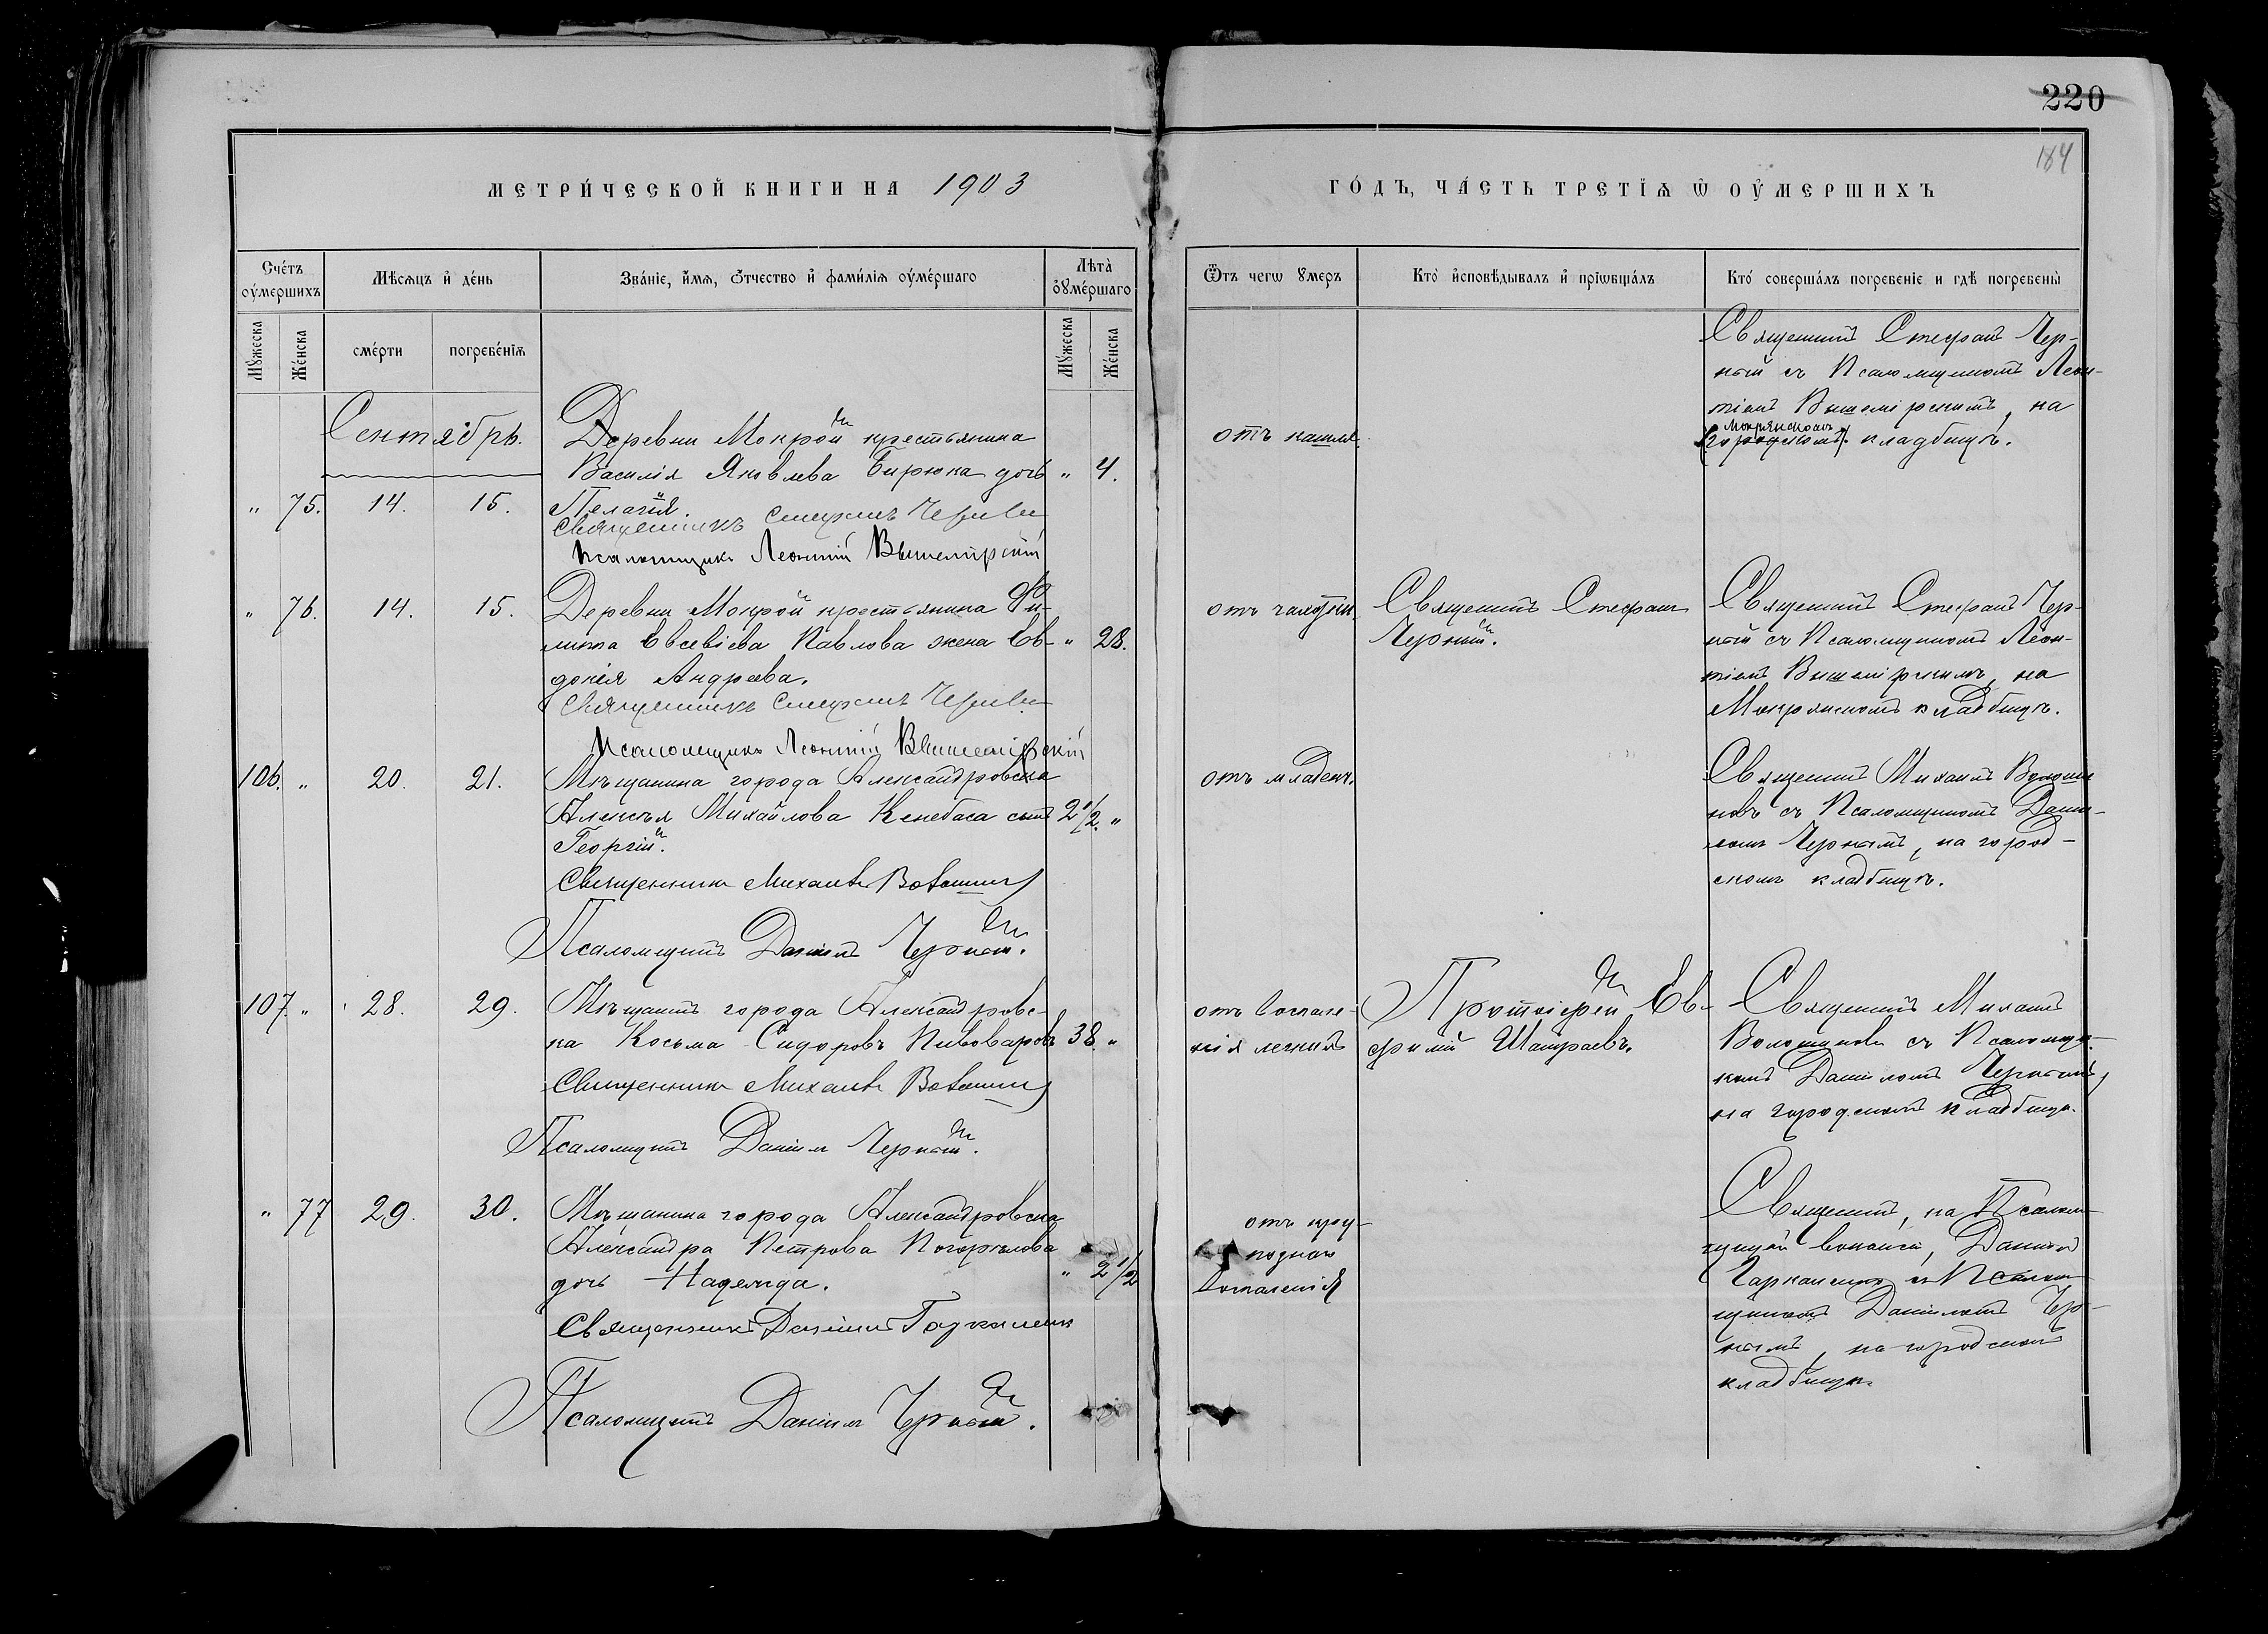 220
184
МЕТРИ́ЧЕСКОЙ КНИГИ НА 1903
ГО́ДЪ, ЧА́СТЬ ТРЕТЇѦ Ѡ҆ ОУ҆МЕРШИХЪ
Сче́тъ оу҆ме́ршихъ
Мѣ́сѧцъ и҆ де́нь
Зва́нїе, и҆́мѧ, ѻ҆́тчество и҆ фами́лїѧ оу҆ме́ршаго
Лѣ́та оу҆ме́ршаго
Ѿ чегѡ ᲂумеръ
Кто̀ и҆сповѣ́дывалъ и҆ прїѡбща́лъ
Кто̀ соверша́лъ погребе́нїе и гдѣ̀ погребены̀
Мꙋ́жеска
Же́нска
сме́рти
погребе́нїѧ
Мꙋ́жеска
Же́нска
Сентябрь.
Деревни Мокрой крестьянина
Василія Яковлева Бирюка дочь " 4.
" 75. 14. 15. Пелагія.
Священникъ Стефанъ Черный
Псаломщикъ Леонтій Вышемірскій
отъ кашля.
Священникъ Стефанъ Чер-
ный съ Псаломщикомъ Леон-
тіемъ Вышемірскимъ, на
Мокрянскомъ
(городскомъ) кладбищѣ.
" 76. 14. 15. Деревни Мокрой крестьянина Фи-
липпа Евсевіева Павлова жена Ев- " 28.
докія Андреева.
Священникъ Стефанъ Черный
Псаломщикъ Леонтій Вышемірскій
отъ чахотки.
Священникъ Стефанъ
Черный.
Священникъ Стефанъ Чер-
ный съ Псаломщикомъ Леон-
тіемъ Вышемірскимъ, на
Мокрянскомъ кладбищѣ.
106. " 20. 21. Мѣщанина города Александровска
Алексѣя Михайлова Кенебаса сынъ 2 1/2. "
Георгій.
Священникъ Михаилъ Волошин
Псаломщикъ Даніилъ Черный.
отъ младенч.
Священникъ Михаилъ Волоши
новъ съ Псаломщикомъ Дані-
ломъ Чернымъ, на город-
скомъ кладбищѣ.
107. " 28. 29. Мѣщанинъ города Александровс-
ка Косьма Сидоровъ Пивоваровъ 38. "
Священникъ Михаилъ Волошин
Псаломщикъ Даніилъ Черный.
отъ воспале-
нія легкихъ
Протоіерей Ев-
фимій Шапраевъ.
Священникъ Михаилъ
Волошиновъ съ Псаломщи-
комъ Даніиломъ Чернымъ,
на городскомъ кладбищѣ.
" 77 29. 30. Мѣщанина города Александровска
Александра Петрова Погорѣлова
дочь Надежда. " 2 1/2
Священникъ Даніилъ
Псаломщикъ Даніилъ Черный.
отъ кру-
познаго
воспаленія
Священникъ, на Псалом-
щицкой вакансіи, Даніилъ
съ Псалом-
щикомъ Даніиломъ Чер-
нымъ, на городскомъ
кладбищѣ.